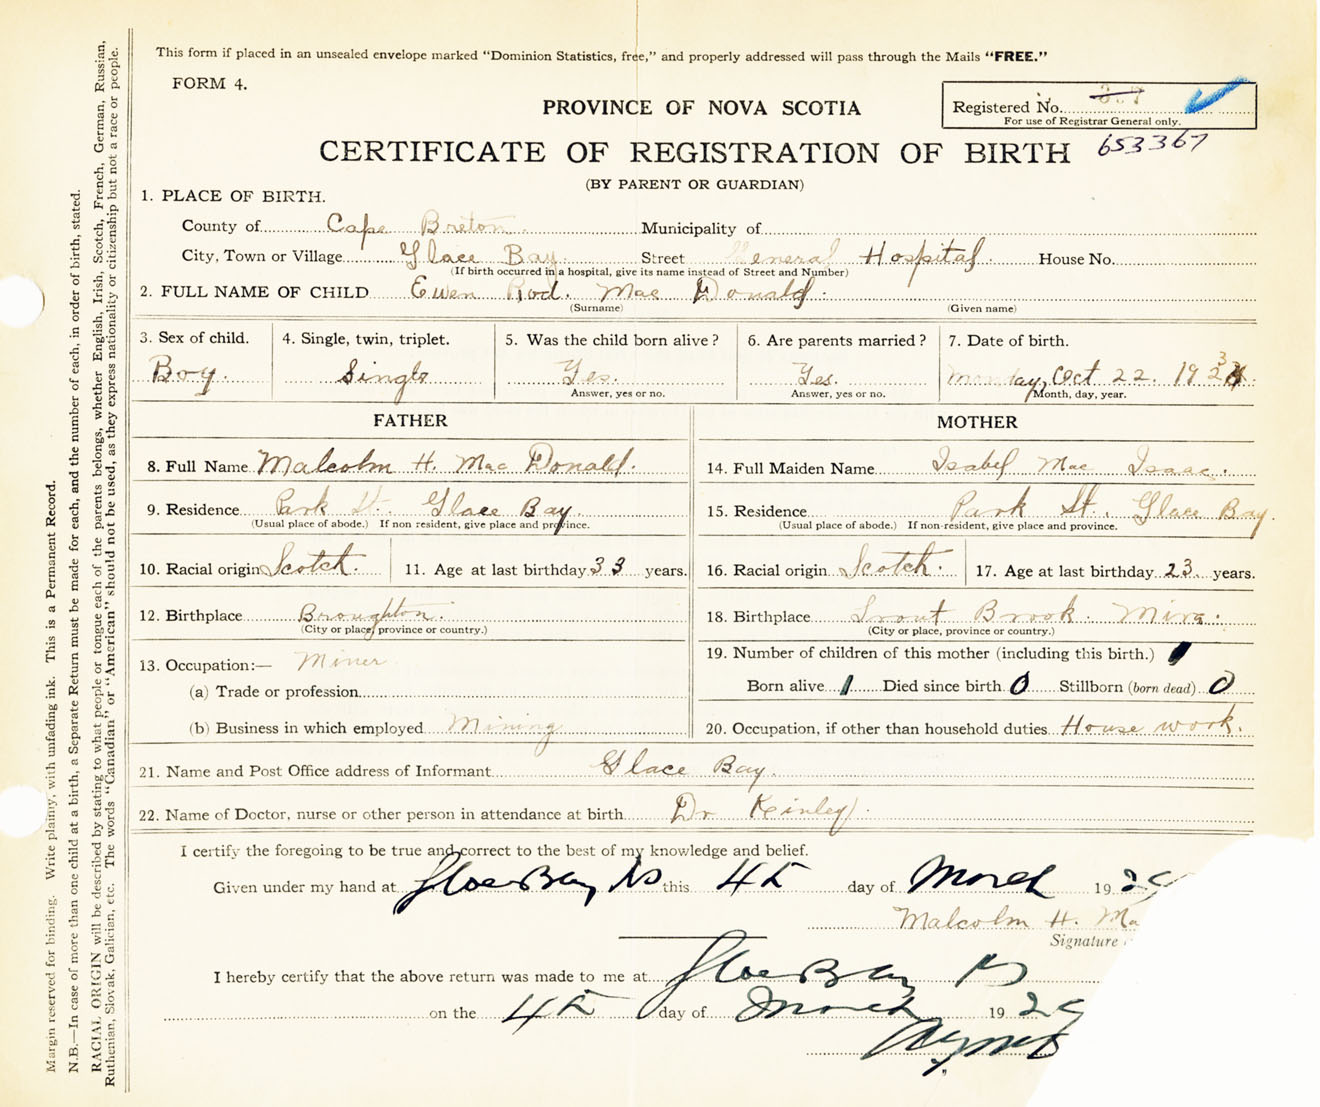 This form if placed in an unsealed envelope marked "Dominion Statistics, free," and properly addressed will pass through the Mails "FREE."
FORM 4.
PROVINCE OF NOVA SCOTIA
Registered No.
For use of Registrar General only.
653367
CERTIFICATE OF REGISTRATION OF BIRTH
(BY PARENT OR GUARDIAN)
1. PLACE OF BIRTH.
County of Cape Breton Municipality of
City, Town or Village Glace Bay Street General Hospital House No.
(If birth occurred in a hospital, give its name instead of Street and Number)
2. FULL NAME OF CHILD Ewen Rod. Mac Donald.
(Surname) (Given name)
3. Sex of child. 4. Single, twin, triplet. 5. Was the child born alive? 6. Are parents married? 7. Date of birth.
Boy. Single Yes. Yes. Monday, Oct 22. 19
Answer, yes or no. Answer, yes or no. Month, day, year.
FATHER MOTHER
8. Full Name Malcolm H. Mac Donald. 14. Full Maiden Name Isabel Mac Isaac.
9. Residence Park St. Glace Bay 15. Residence Park St., Glace Bay.
(Usual place of abode.) If non resident, give place and province. (Usual place of abode.) If non-resident, give place and province.
10. Racial origin Scotch. 11. Age at last birthday 33 years. 16. Racial origin Scotch. 17. Age at last birthday 23 years.
12. Birthplace Broughton. 18. Birthplace Trout Brook. Mira.
(City or place, province or country.) (City or place, province or country.)
13. Occupation:— Miner 19. Number of children of this mother (including this birth.) 1
(a) Trade or profession Born alive 1 Died since birth 0 Stillborn (born dead) 0
(b) Business in which employed Mining 20. Occupation, if other than household duties House work.
21. Name and Post Office address of Informant Glace Bay.
22. Name of Doctor, nurse or other person in attendance at birth Dr Kinley.
I certify the foregoing to be true and correct to the best of my knowledge and belief.
Given under my hand at Glace Bay NS this 4th day of March 1929
Malcolm H. Ma
Signature
I hereby certify that the above return was made to me at Glace Bay NS
on the 4th day of March 1929
Margin reserved for binding. Write plainly, with unfading ink. This is a Permanent Record.
N.B.—In case of more than one child at a birth, a Separate Return must be made for each, and the number of each, in order of birth, stated.
RACIAL ORIGIN will be described by stating to what people or tongue each of the parents belongs, whether English, Irish, Scotch, French, German, Russian,
Ruthenian, Slovak, Galician, etc. The words "Canadian" or "American" should not be used, as they express nationality or citizenship but not a race or people.